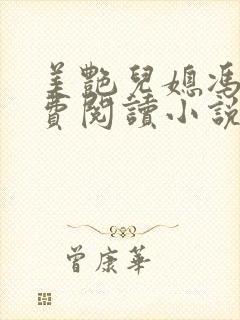 美艷兒媳馮
費閱讀小說
曾康華